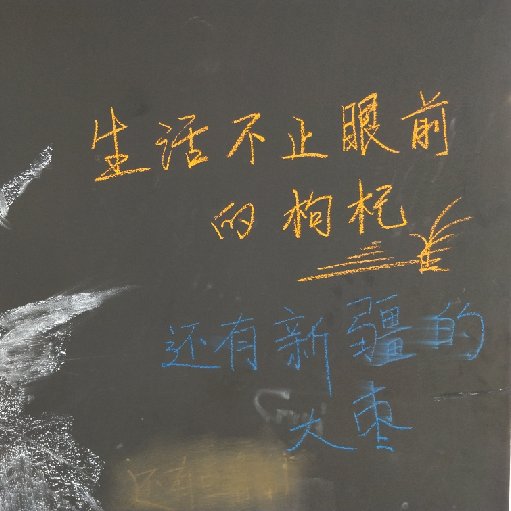 生活不止眼前
的枸杞
还有新疆的
大枣